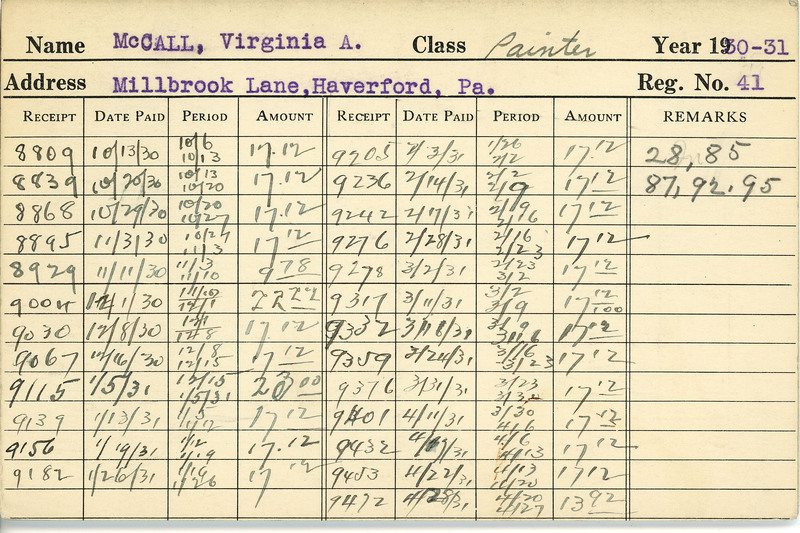 Name McCALL, Virginia A. Class Painter Year 1930-31
Address Millbrook Lane, Haverford, Pa. Reg. No. 41
RECEIPT DATE PAID PERIOD AMOUNT RECEIPT DATE PAID PERIOD AMOUNT REMARKS
8809 10/13/30 10/6 10/13 17.12 9205 2/3/31 1/26 2/2 17.12 28, 85
8839 10/20/30 10/13 10/20 17.12 9236 2/14/31 2/2 2/9 17 12 87, 92, 95
8868 10/29/30 10/20 10/27 17.12 9242 2/17/31 2/9 2/16 17 12
8895 11/3/30 10/27 11/3 17 12 9276 2/28/31 2/16 2/23 17 12
8929 11/11/30 11/3 11/10 9 78 9278 3/2/31 2/23 3/2 17 12
9004 12/1/30 11/10 12/1 9317 3/11/31 3/2 3/9 17 12/100
9030 12/8/30 12/1 12/8 17.12 9332 3/18/31 3/9 3/16 17 12
9067 12/16/30 12/8 12/15 17 12 9359 3/24/31 3/16 3/23 17 12
9115 1/5/31 12/15 1/5/31 20 00 9376 3/31/31 3/23 17 12
9139 1/13/31 1/5 1/12 17 12 9401 4/11/31 3/30 4/6 17 12
9156 1/19/31 1/12 1/19 17.12 9432 4/6 4/13 17 12
9182 1/26/31 1/19 1/26 17 12 9453 4/22/31 4/13 4/20 17 12
9472 4/28/31 4/20 4/27 13 92